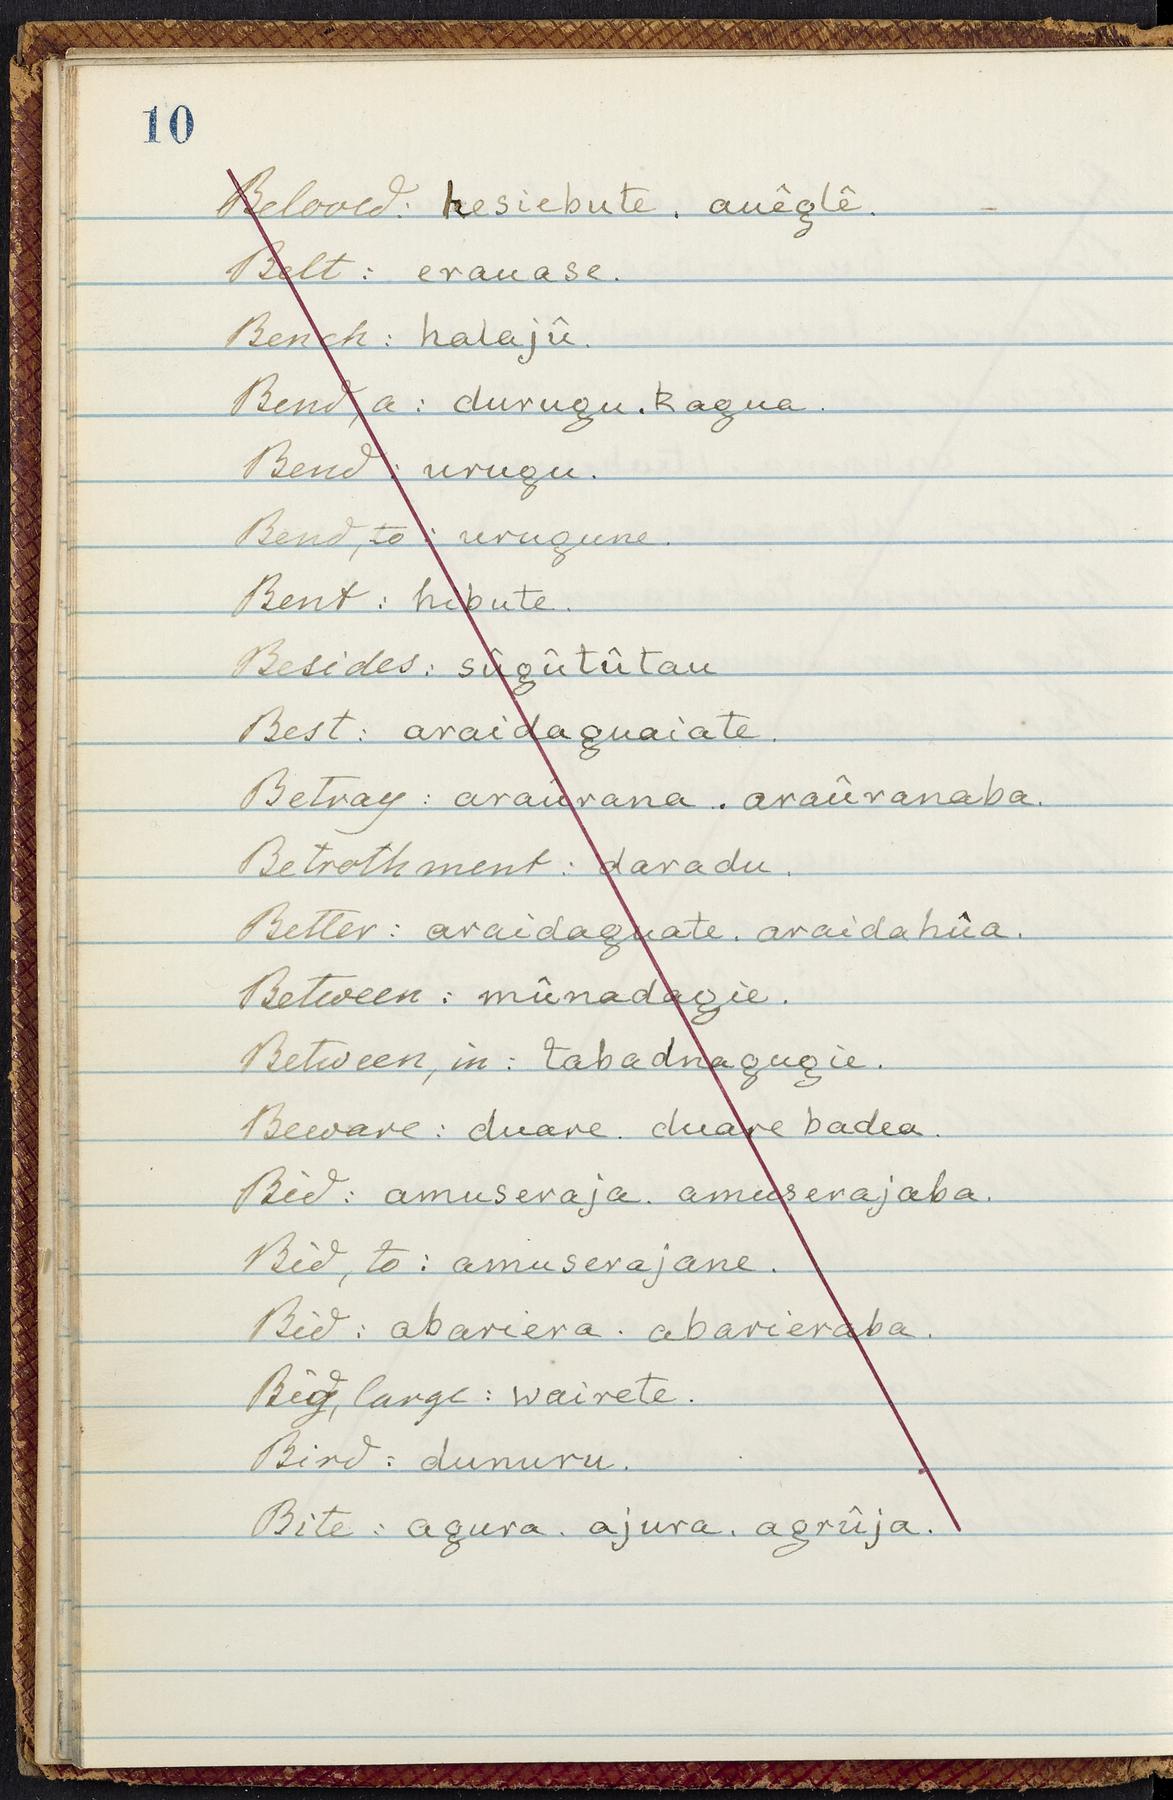 10
Beloved: hesiebute. auêglê.
Belt: erauase.
Bench: halajû.
Bend, a: durugu. kagua.
Bend: urugu.
Bend, to: urugune.
Bent: hibute.
Besides: sûgûtûtau
Best: araidaguaiate.
Betray: araûrana. araûranaba.
Betrothment: daradu.
Better: araidaguate. araidahûa.
Between: mûnadagie.
Between, in: tabadnagugie.
Beware: duare. duare badea.
Bid: amuseraja. amuserajaba.
Bid, to: amuserajane.
Bid: abariera. abarieraba.
Big, large: wairete.
Bird: dunuru.
Bite: agura. ajura. agrûja.